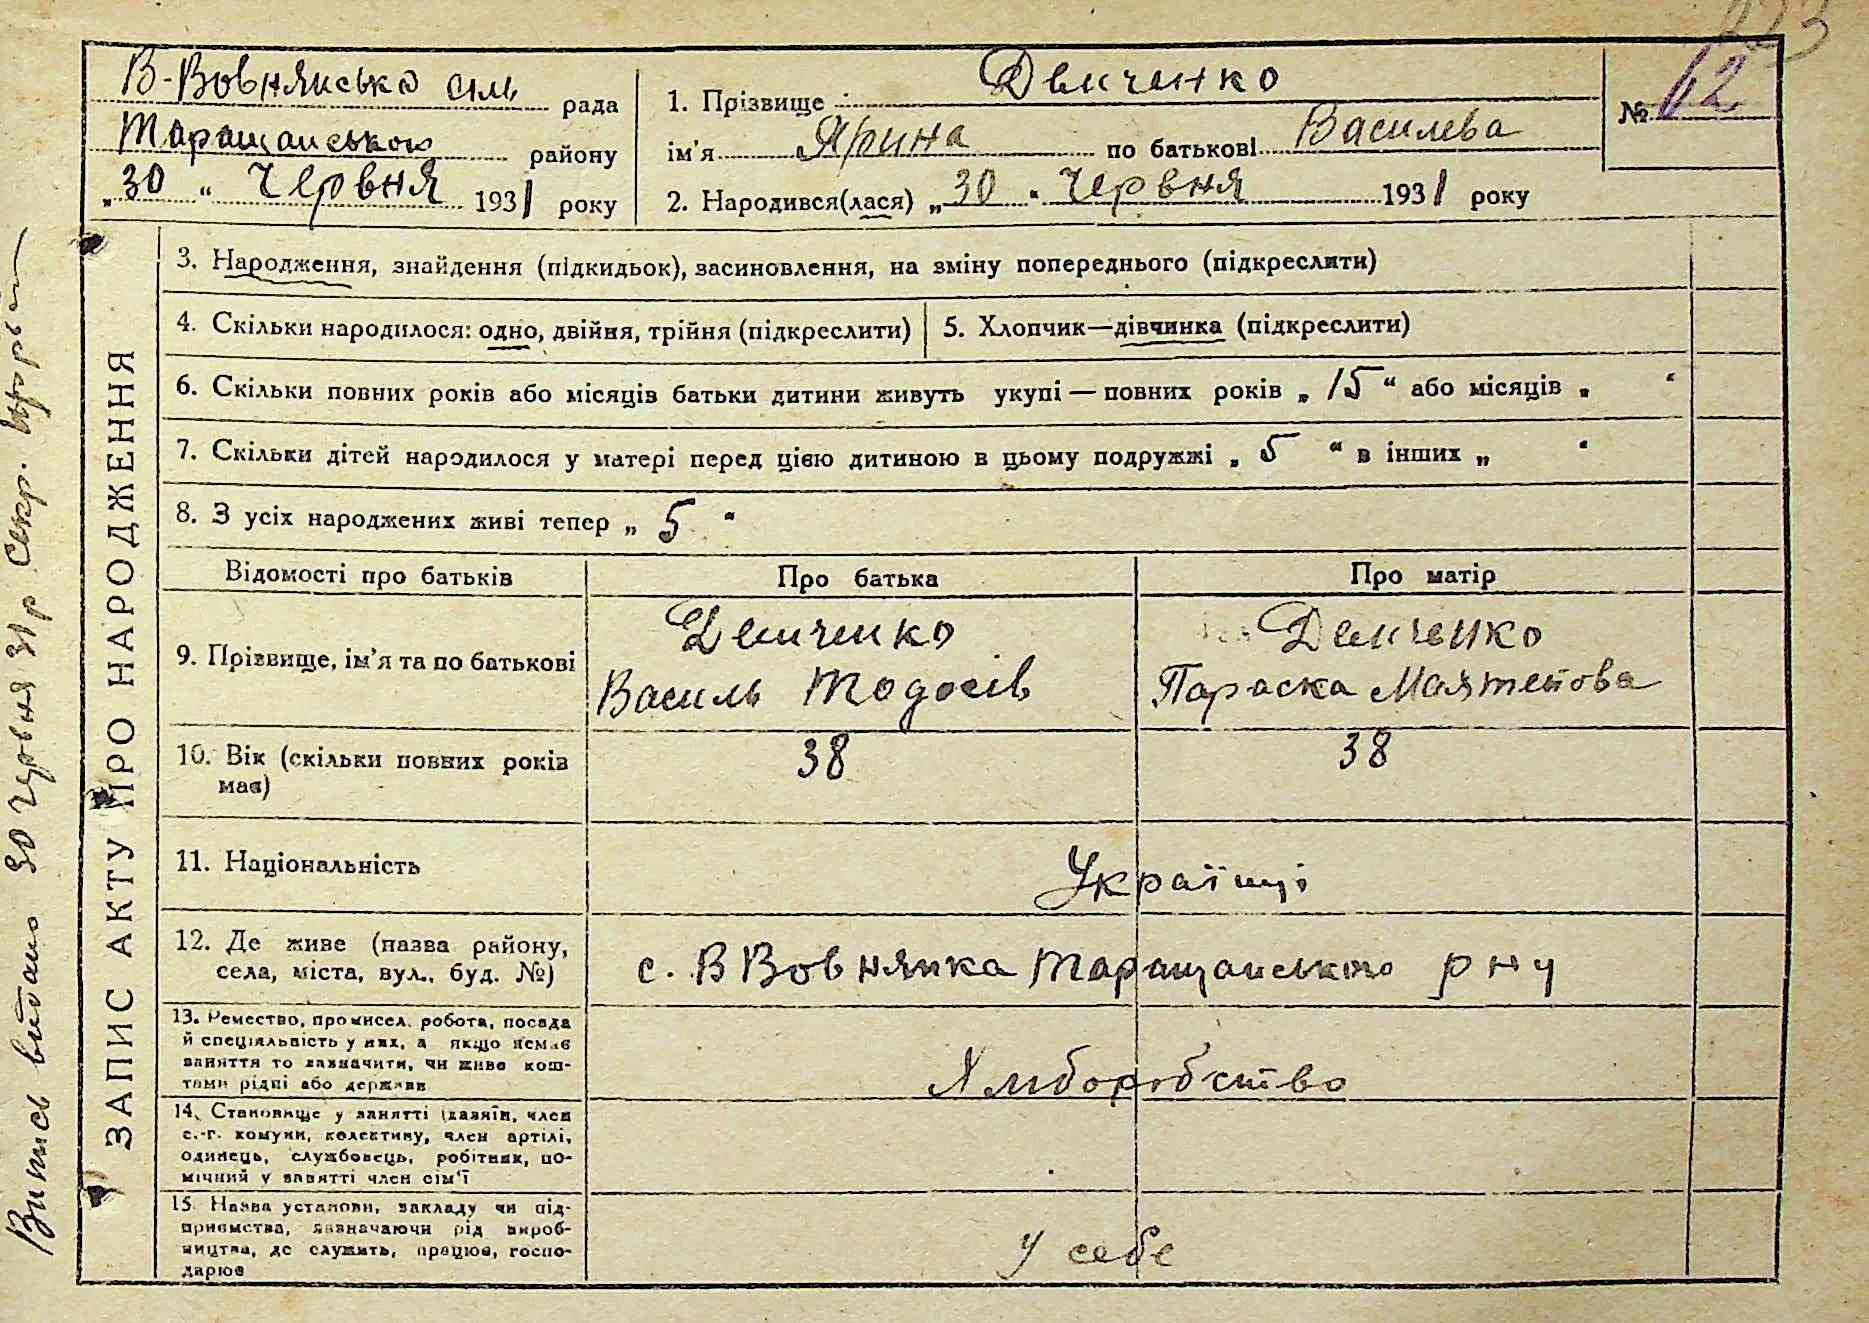 В-Вовнянська сіль рада
Таращанського району
„30“ Червня 1931 року
1. Прізвище Демченко
ім'я Ярина по батькові Василева
2. Народився(лася) „30“ Червня 1931 року
№ 62
3. Народження, знайдення (підкидьок), засиновлення, на зміну попереднього (підкреслити)
4. Скільки народилося: одно, двійня, трійня (підкреслити)
5. Хлопчик—дівчинка (підкреслити)
6. Скільки повних років або місяців батьки дитини живуть укупі — повних років „15“ або місяців „ “
7. Скільки дітей народилося у матері перед цією дитиною в цьому подружжі „5“ в інших „ “
8. З усіх народжених живі тепер „5“
Відомості про батьків
Про батька
Про матір
9. Прізвище, ім'я та по батькові
Демченко
Василь Тодосів
Демченко
Параска
10. Вік (скільки повних років має)
38
38
11. Національність
Українці
12. Де живе (назва району,
села, міста, вул., буд. №)
с. В Вовнянка Таращанського р ну
13. Ремество, промисел, робота, посада
й спеціяльність у них, а якщо немає
заняття то зазначити, чи живе кош-
тами рідні або держави
Хліборобство
14. Становище у занятті (хазяїн, член
с.-г. комуни, колективу, член артілі,
одинець, службовець, робітник, по-
мічний у занятті член сім'ї
15. Назва установи, закладу чи під-
приємства, зазначаючи рід вироб-
ництва, де служить, працює, госпо-
дарює
у себе
ЗАПИС АКТУ ПРО НАРОДЖЕННЯ
Випись видано 30 червня 31р Секр.